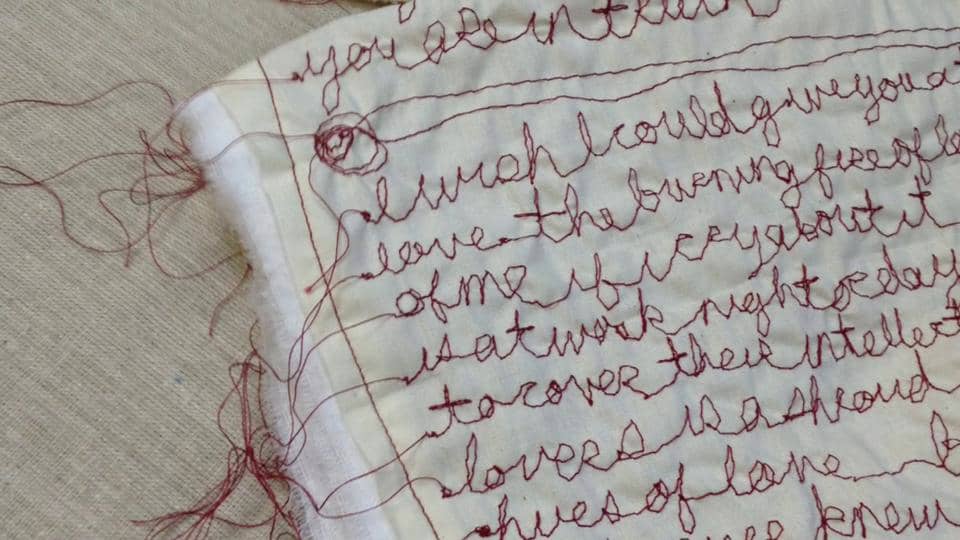 you are in
I wish I could give you a
leave the burning fire of
of me if i cry about it
is at work night or day
to cover their intellect
lovers is a shroud
hues of love
knew